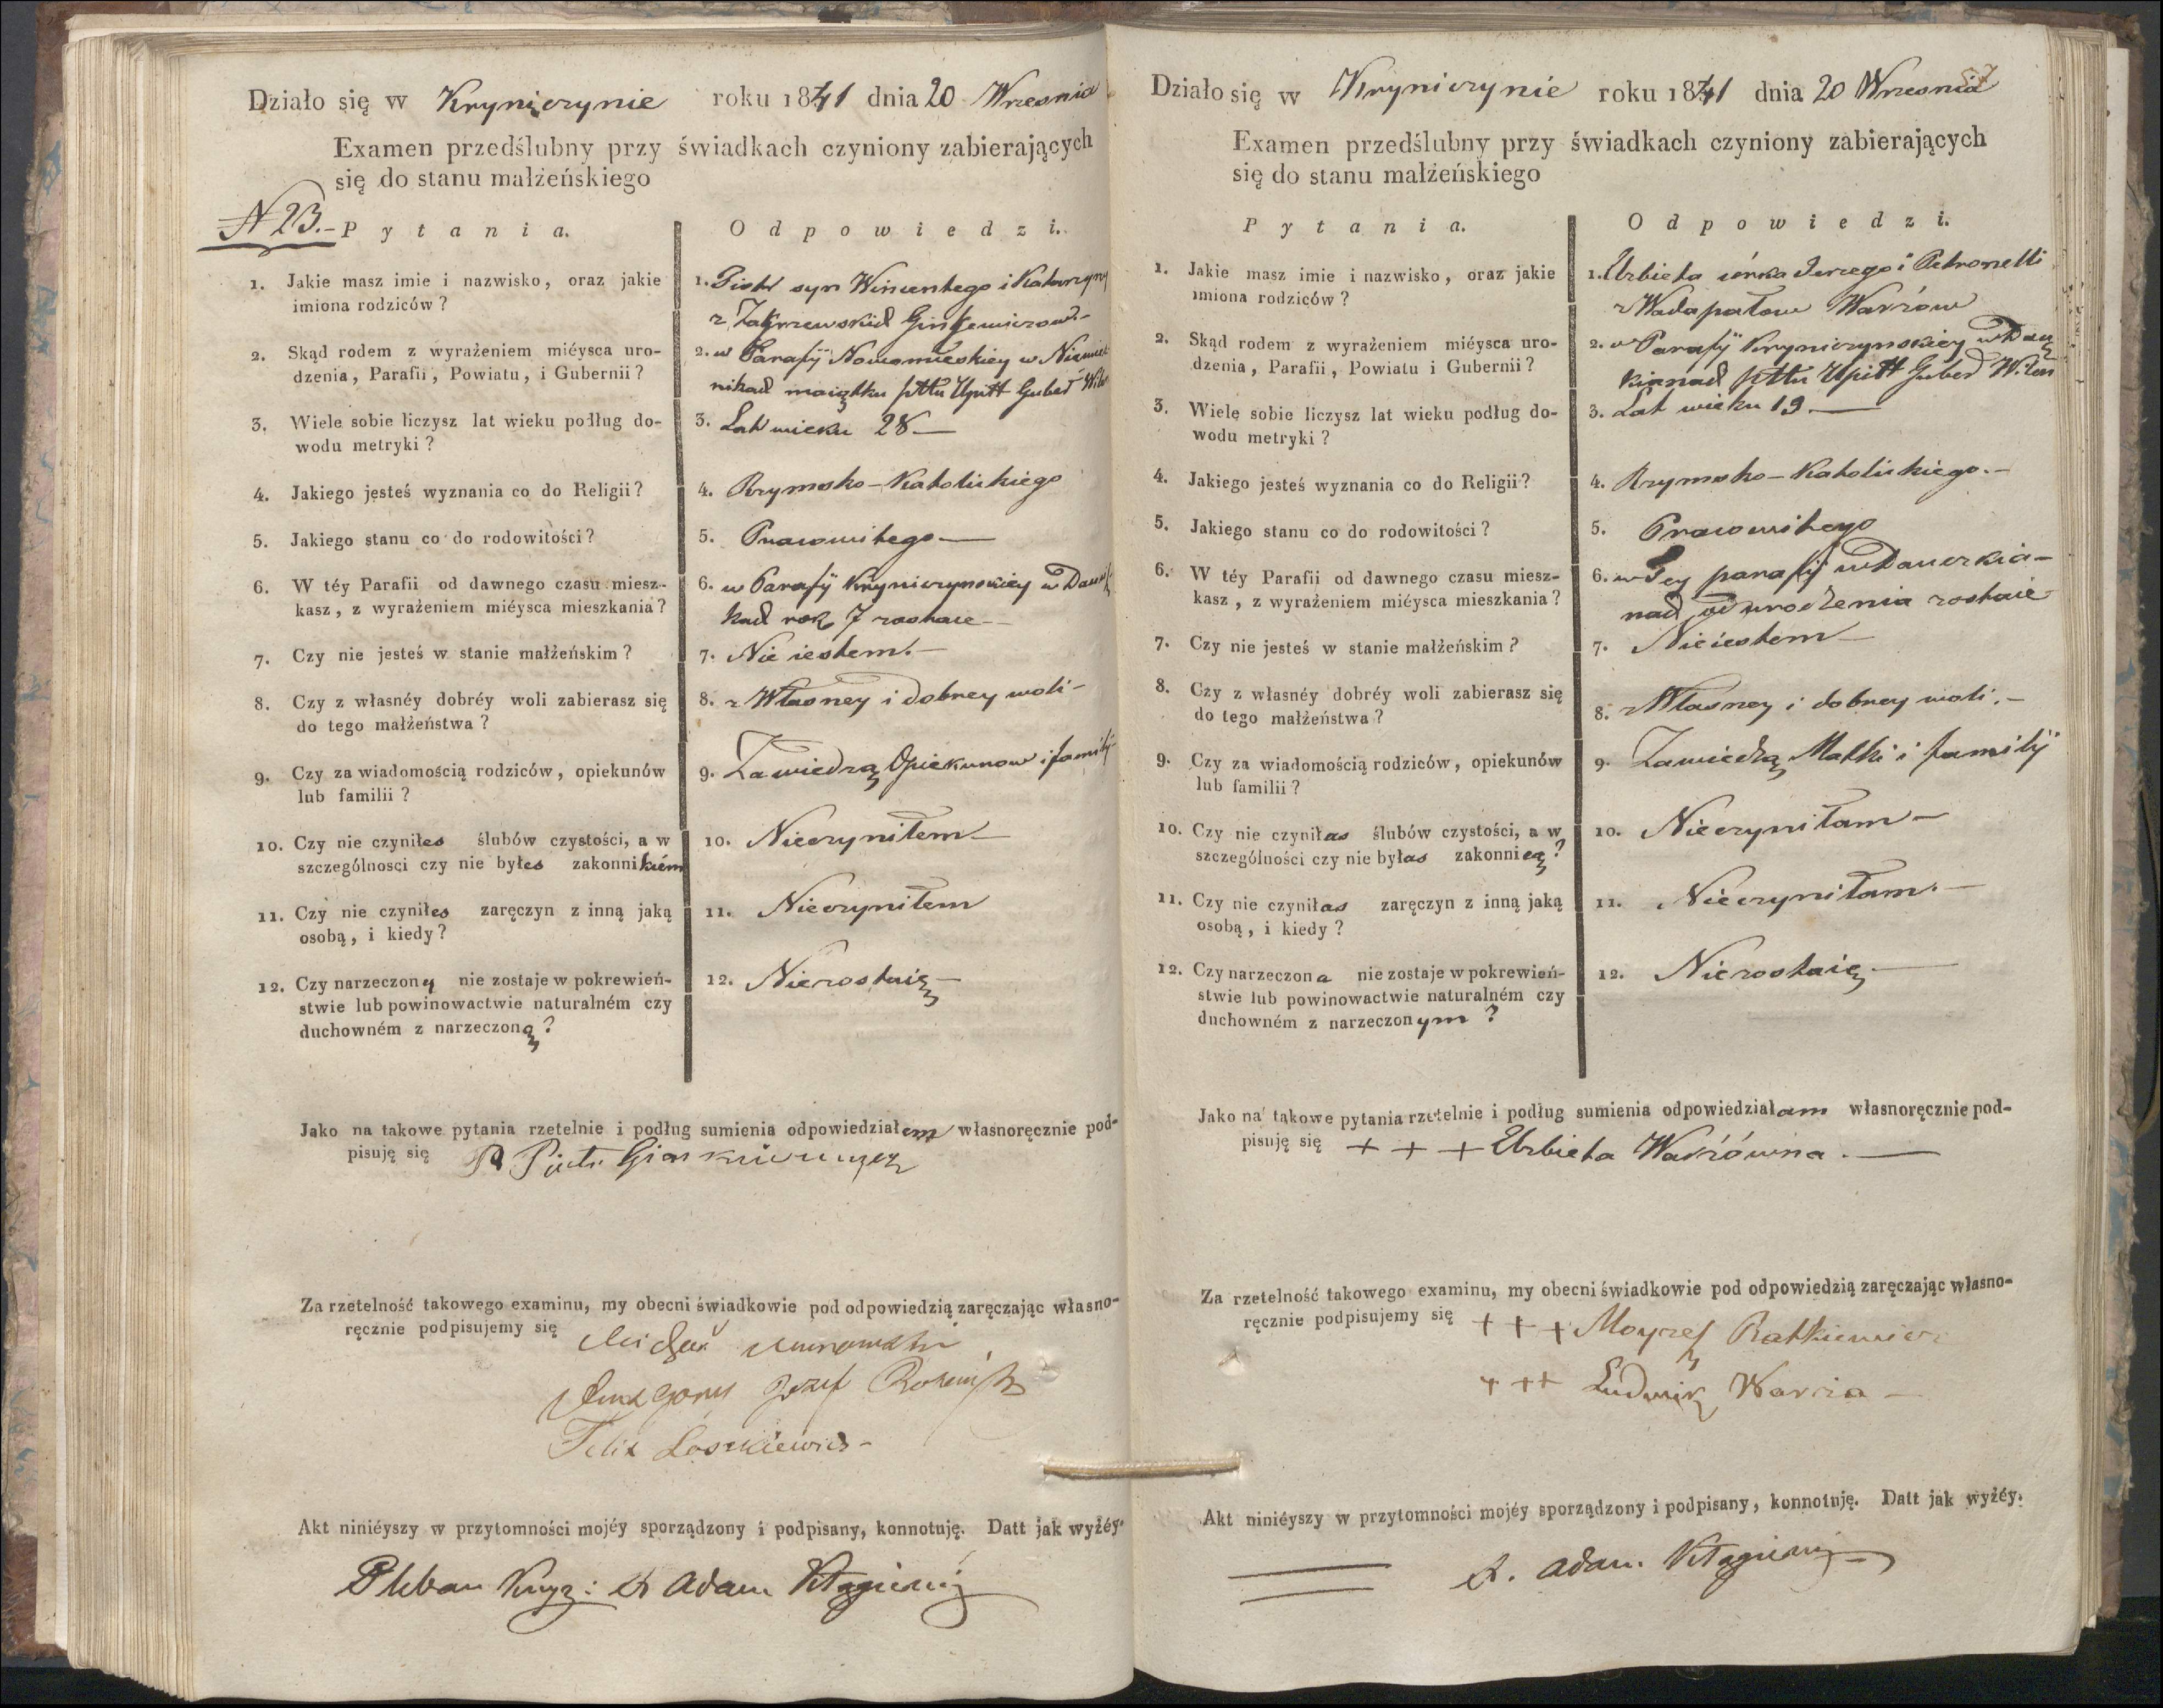 Działo się w Kryniczynie roku 1841 dnia 20 Wrzesnia
Examen przedślubny przy świadkach czyniony zabierających
się do stanu małżeńskiego
N 23.-
Pytania.
Odpowiedzi.
1. Jakie masz imie i nazwisko, oraz jakie
imiona rodziców?
1. Piotr syn Wincentego i Katarzyny
z Zakrzewskich
2. Skąd rodem z wyrażeniem miéysca uro-
dzenia, Parafii, Powiatu, i Gubernii?
2. w Parafij Nowomieskiey w
maiątku pttu Upitt Guber Wilen
3. Wiele sobie liczysz lat wieku podług do-
wodu metryki?
3. Lat wieku 28 —
4. Jakiego jesteś wyznania co do Religii?
4. Rzymsko-Katolickiego
5. Jakiego stanu co do rodowitości?
5. Pracowitego —
6. W téy Parafii od dawnego czasu miesz-
kasz, z wyrażeniem miéysca mieszkania?
6. w Parafij Kryniczynskiey w
rok 7 zostaie —
7. Czy nie jesteś w stanie małżeńskim?
7. Nie iestem. —
8. Czy z własnéy dobréy woli zabierasz się
do tego małżeństwa?
8. z Własney i dobrey woli -
9. Czy za wiadomością rodziców, opiekunów
lub familii?
9. Za wiedzą Opiekunow i familij
10. Czy nie czyniłes ślubów czystości, a w
szczególnosci czy nie byłes zakonnikiém
10. Nieczyniłem —
11. Czy nie czyniłes zaręczyn z inną jaką
osobą, i kiedy?
11. Nieczyniłem
12. Czy narzeczony nie zostaje w pokrewień-
stwie lub powinowactwie naturalném czy
duchowném z narzeczoną?
12. Niezostaię —
Jako na takowe pytania rzetelnie i podług sumienia odpowiedziałem własnoręcznie pod-
pisuję się Piotr
Za rzetelność takowego examinu, my obecni świadkowie pod odpowiedzią zaręczając własno-
ręcznie podpisujemy się Michał
Jozef
Felix
Akt niniéyszy w przytomności mojéy sporządzony i podpisany, konnotuję. Datt jak wyżéy.
Pleban X Adam
Działo się w Kryniczynie roku 1841 dnia 20 Wrzesnia
Examen przedślubny przy świadkach czyniony zabierających
się do stanu małżeńskiego
Pytania.
Odpowiedzi.
1. Jakie masz imie i nazwisko, oraz jakie
imiona rodziców?
1. Elzbieta córka Jerzego i Petronelli
z Wadapałow
2. Skąd rodem z wyrażeniem miéysca uro-
dzenia, Parafii, Powiatu i Gubernii?
2. w Parafij Kryniczynskiey w Dau
kianach pttu Upitt Guber Wilen
3. Wiele sobie liczysz lat wieku podług do-
wodu metryki?
3. Lat wieku 19 —
4. Jakiego jesteś wyznania co do Religii?
4. Rzymsko-Katolickiego. —
5. Jakiego stanu co do rodowitości?
5. Pracowitego
6. W téy Parafii od dawnego czasu miesz-
kasz, z wyrażeniem miéysca mieszkania?
6. w Tey parafij w Dauczkia-
nach od urodzenia zostaie
7. Czy nie jesteś w stanie małżeńskim?
7. Nieiestem —
8. Czy z własnéy dobréy woli zabierasz się
do tego małżeństwa?
8. z Własney i dobrey woli. —
9. Czy za wiadomością rodziców, opiekunów
lub familii?
9. Zawiedzą Matki i familij
10. Czy nie czyniłas ślubów czystości, a w
szczególności czy nie byłas zakonnicą?
10. Nieczyniłam —
11. Czy nie czyniłas zaręczyn z inną jaką
osobą, i kiedy?
11. Nieczyniłam. —
12. Czy narzeczona nie zostaje w pokrewień-
stwie lub powinowactwie naturalném czy
duchowném z narzeczonym?
12. Niezostaię —
Jako na takowe pytania rzetelnie i podług sumienia odpowiedziałam własnoręcznie pod-
pisuję się + + + Elzbieta
Za rzetelność takowego examinu, my obecni świadkowie pod odpowiedzią zaręczając własno-
ręcznie podpisujemy się + + + Moyzesz Ratkiewicz
+ + + Ludwik
Akt niniéyszy w przytomności mojéy sporządzony i podpisany, konnotuję. Datt jak wyżéy.
X. Adam